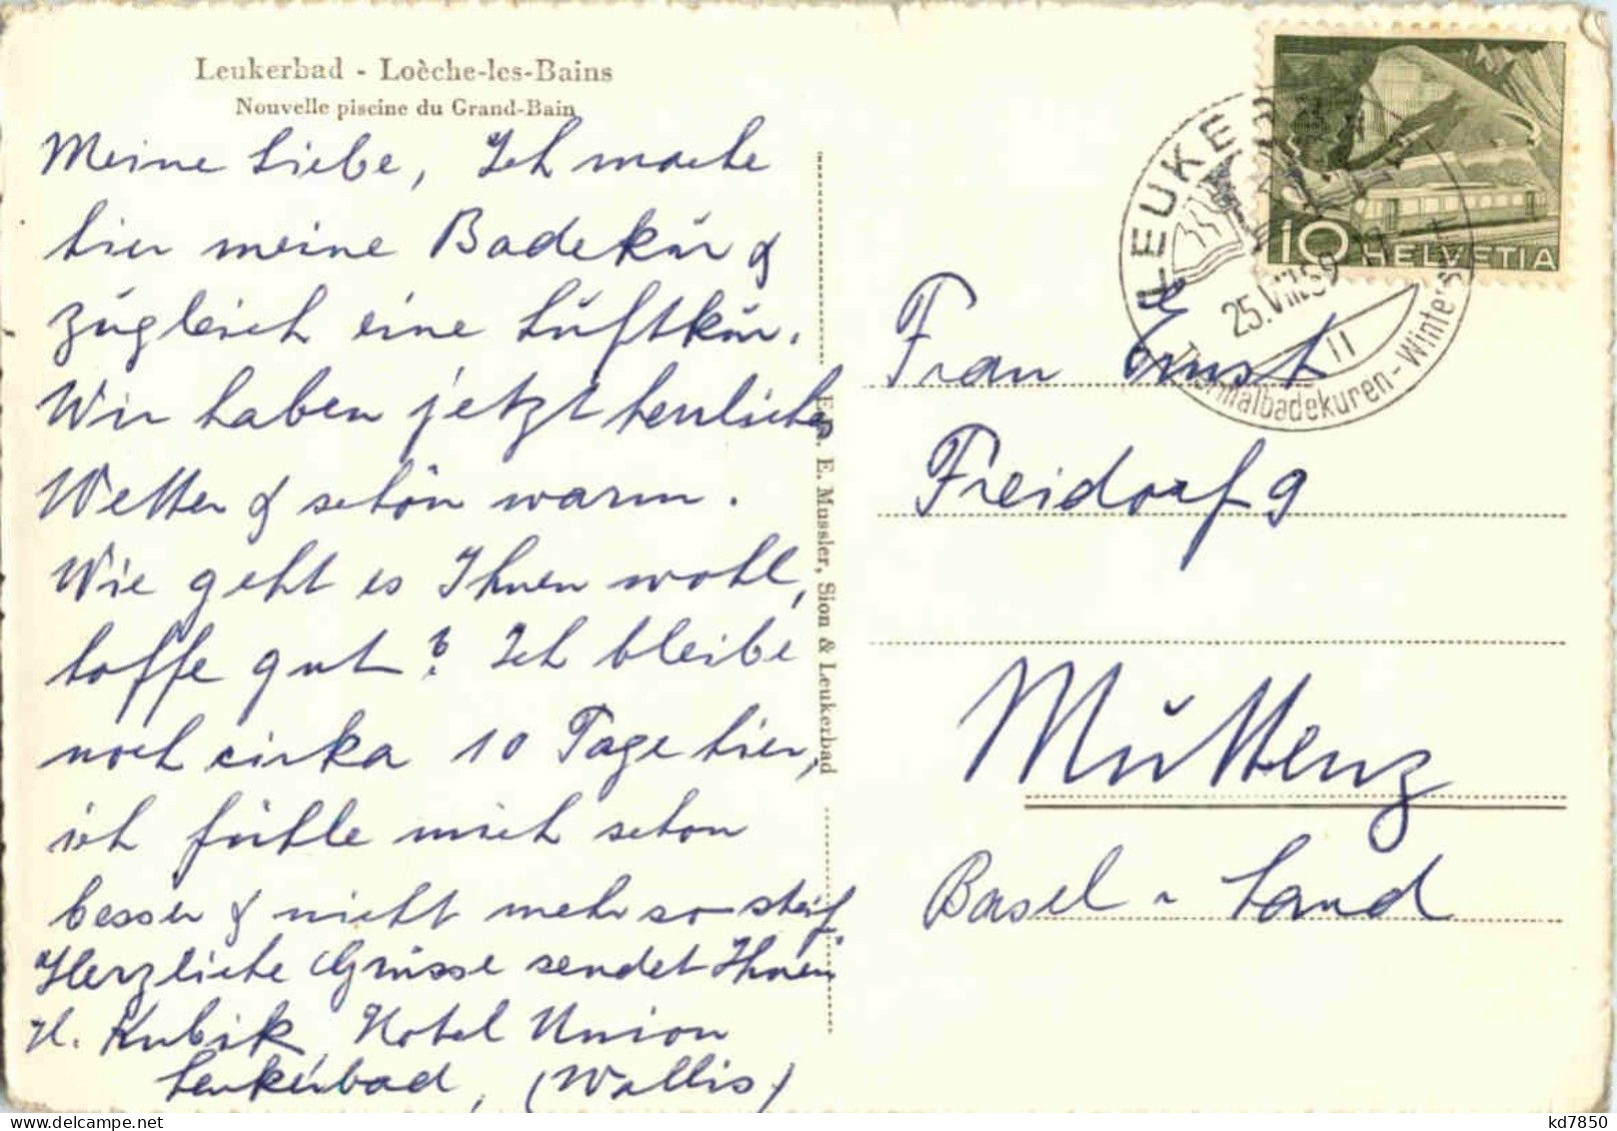 Leukerbad - Loèche-les-Bains
Nouvelle piscine du Grand-Bain
Meine Liebe, Ich mache
hier meine Badekur &
zugleich eine Luftkur.
Wir haben jetzt herrliches
Wetter & schön warm.
Wie geht es Ihnen wohl,
hoffe gut? Ich bleibe
noch cirka 10 Tage hier,
ich fühle mich schon
besser & nicht mehr so steif.
Herzliche Grüsse sendet Ihnen
H. Kubik, Hotel Union
Leukerbad, (Wallis)
E. Mussler, Sion & Leukerbad
10 HELVETIA
LEUKER
25.VIII.59
11
Thermalbadekuren-Winters
Frau Ernst
Freidorf 9
Muttenz
Basel-Land
kd7850